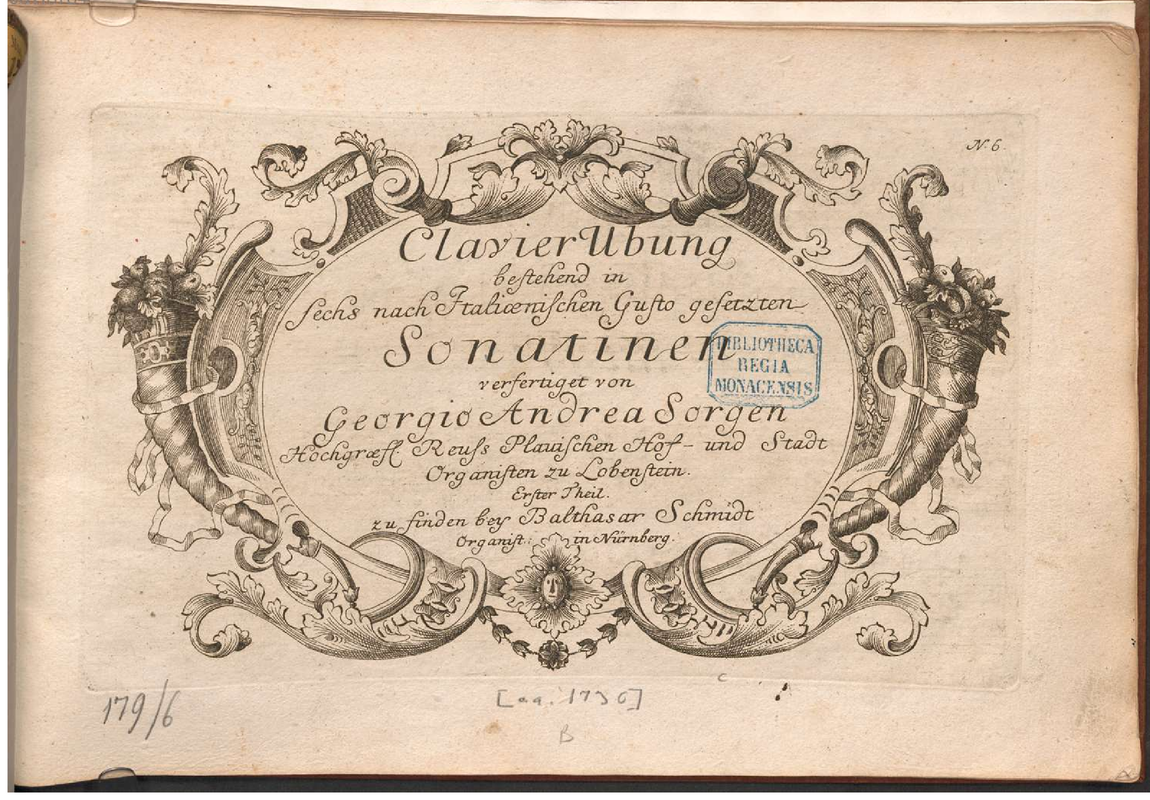 N. 6.
ClavierUbung
bestehend in
sechs nach Italiænischen Gusto gesetzten
Sonatinen
verfertiget von
Georgio Andrea Sorgen
Hochgræfl. Reuss Plauischen Hof- und Stadt
Organisten zu Lobenstein.
Erster Theil.
zu finden bey Balthasar Schmidt
Organist: in Nürnberg.
BIBLIOTHECA
REGIA
MONACENSIS
179/6
B